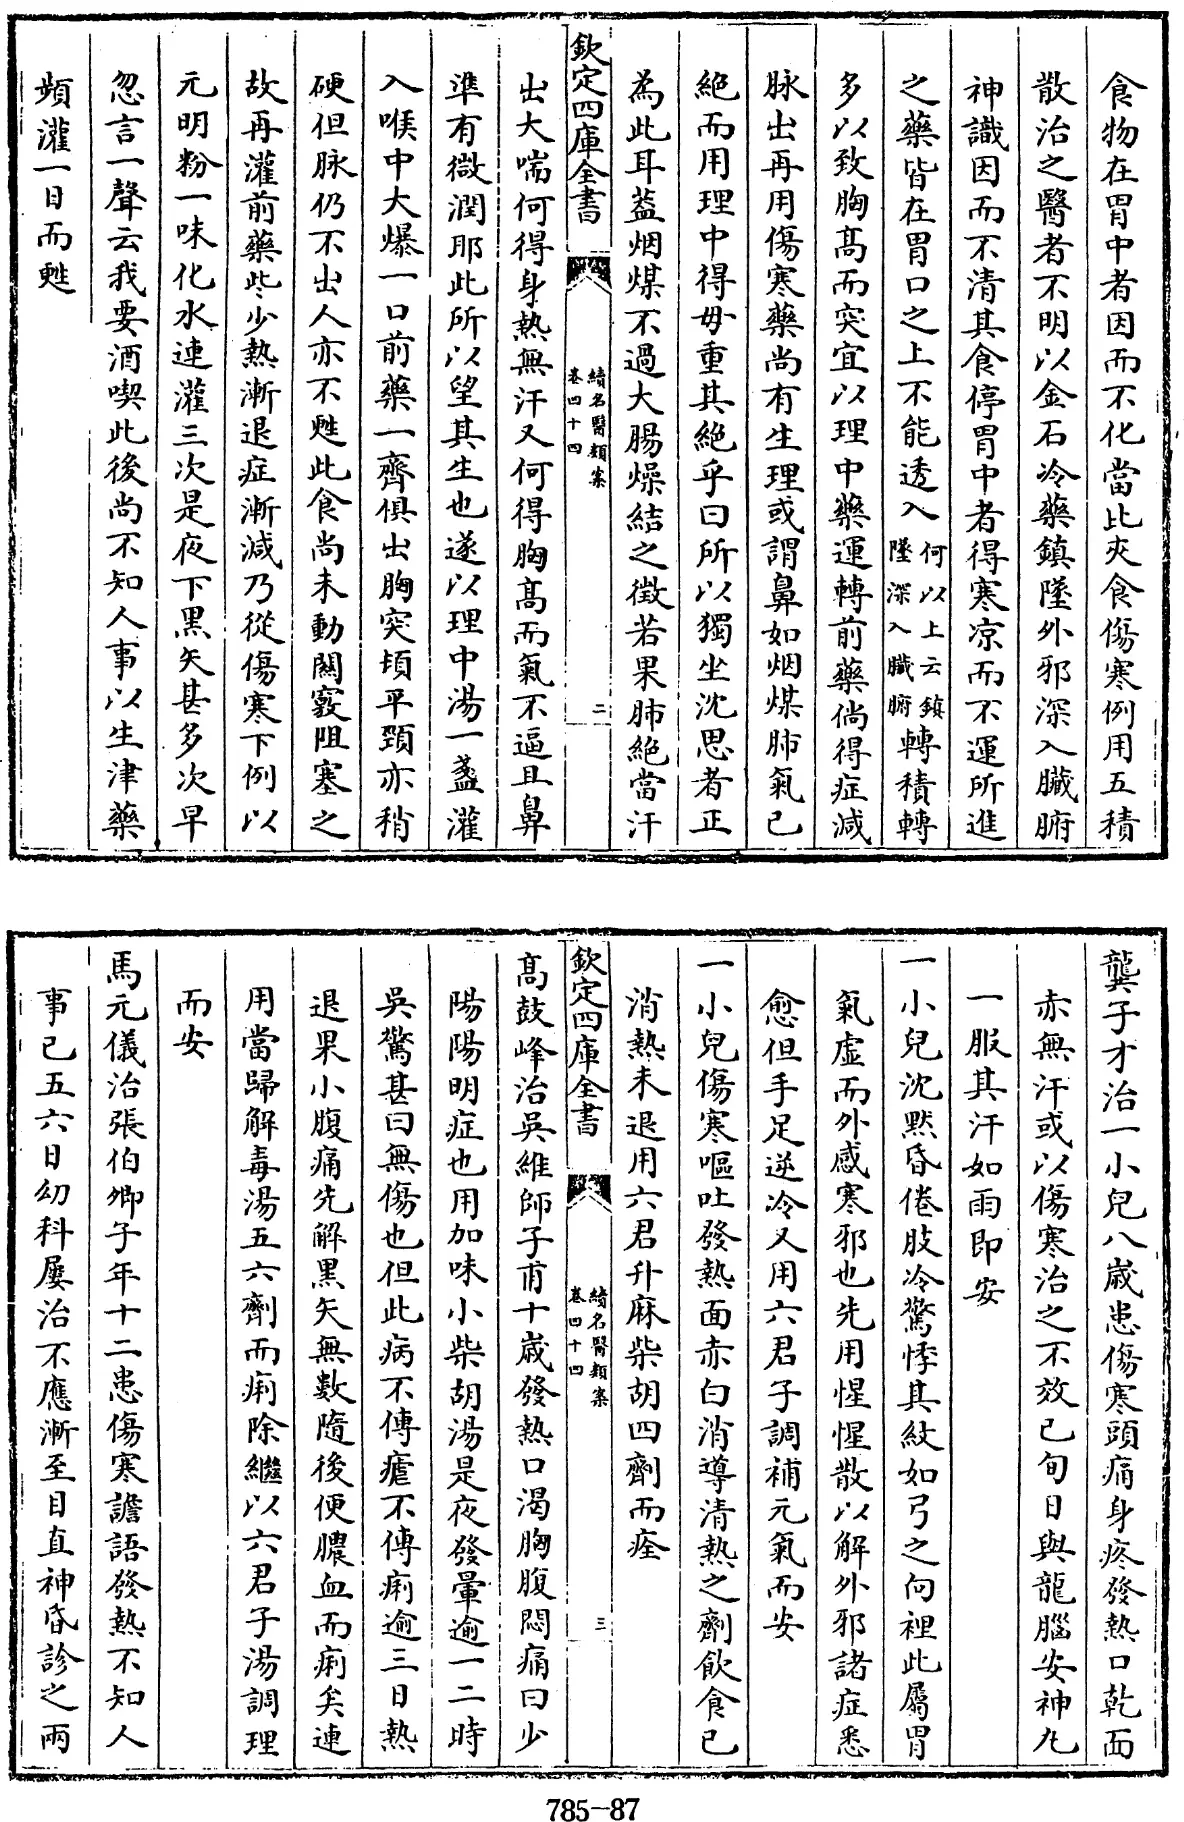 食物在胃中者因而不化當此夾食傷寒例用五積
散治之醫者不明以金石冷藥鎮墜外邪深入臟腑
神識因而不清其食停胃中者得寒凉而不運所進
之藥皆在胃口之上不能透入何以上云鎮墜深入臟腑轉積轉
多以致胸髙而突宜以理中藥運轉前藥倘得症減
脉出再用傷寒藥尚有生理或謂鼻如烟煤肺氣已
絶而用理中得毋重其絶乎曰所以獨坐沈思者正
為此耳葢烟煤不過大腸燥結之徵若果肺絶當汗
欽定四庫全書
續名醫類案
卷四十四
二
出大喘何得身熱無汗又何得胸髙而氣不逼且鼻
準有微潤耶此所以望其生也遂以理中湯一盞灌
入喉中大爆一口前藥一齊俱出胸突頃平頸亦稍
硬但脉仍不出人亦不甦此食尚未動關竅阻塞之
故再灌前藥些少熱漸退症漸減乃從傷寒下例以
元明粉一味化水連灌三次是夜下黑矢甚多次早
忽言一聲云我要酒喫此後尚不知人事以生津藥
頻灌一日而甦
龔子才治一小兒八歲患傷寒頭痛身疼發熱口乾面
赤無汗或以傷寒治之不效已旬日與龍腦安神丸
一服其汗如雨即安
一小兒沈黙昏倦肢冷驚悸其紋如弓之向裡此屬胃
氣虚而外感寒邪也先用惺惺散以解外邪諸症悉
愈但手足逆冷又用六君子調補元氣而安
一小兒傷寒嘔吐發熱面赤白消導清熱之劑飲食已
消熱未退用六君升麻柴胡四劑而痊
欽定四庫全書
續名醫類案
卷四十四
三
髙鼓峰治吳維師子甫十歲發熱口渴胸腹悶痛曰少
陽陽明症也用加味小柴胡湯是夜發暈逾一二時
吳驚甚曰無傷也但此病不傳瘧不傳痢逾三日熱
退果小腹痛先解黑矢無數隨後便膿血而痢矣連
用當歸解毒湯五六劑而痢除繼以六君子湯調理
而安
馬元儀治張伯卿子年十二患傷寒譫語發熱不知人
事已五六日幼科屢治不應漸至目直神昏診之兩
785-87